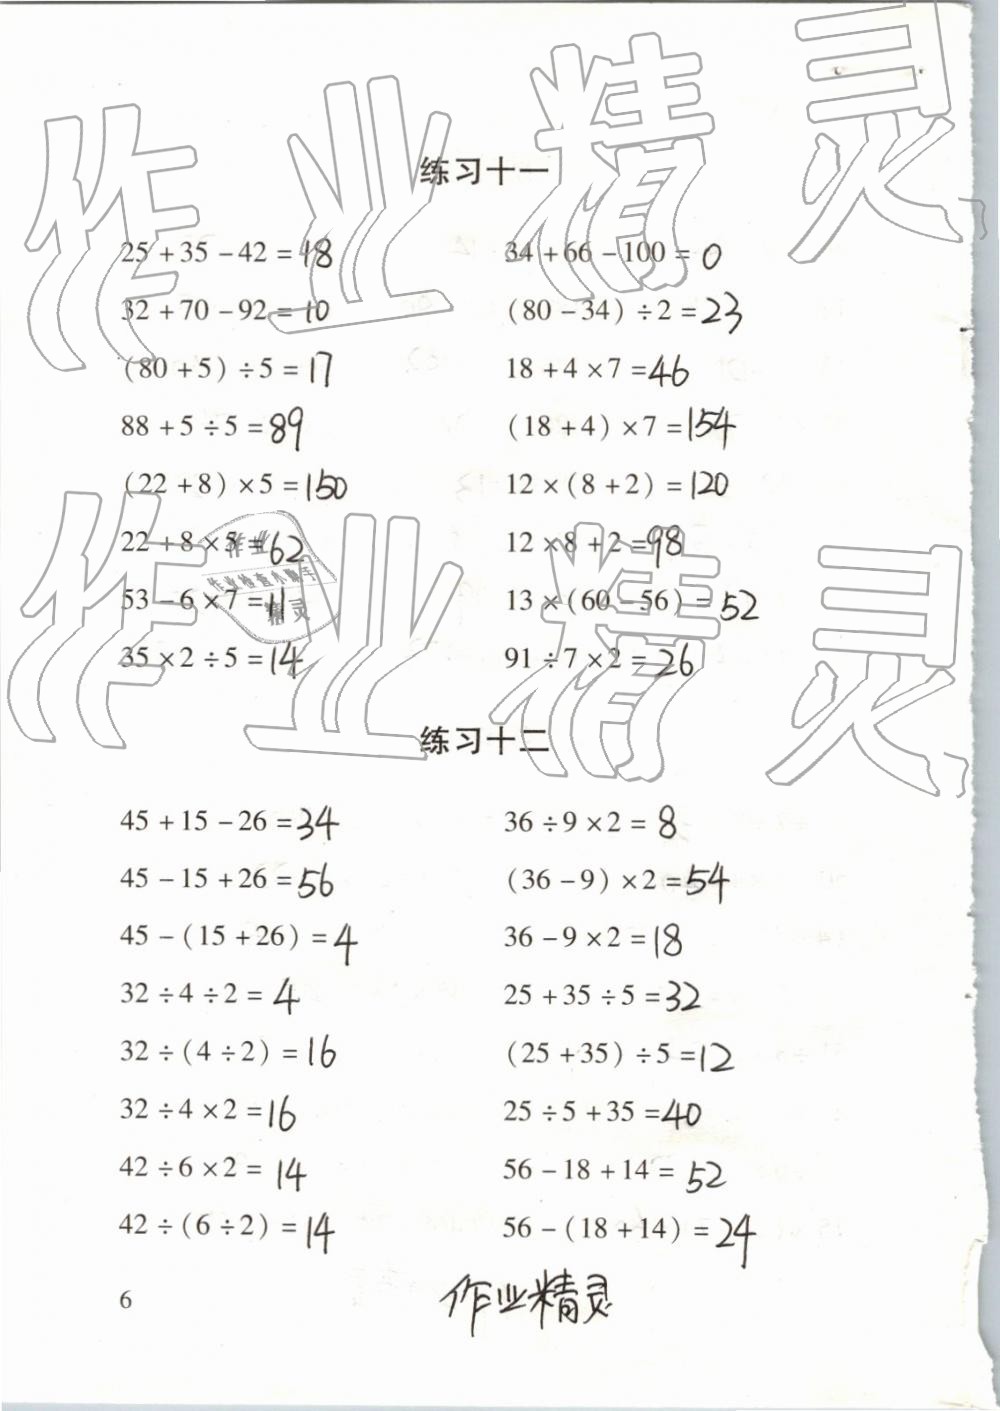 作业精灵
练习十一
25 + 35 - 42 = 18 34 + 66 - 100 = 0
32 + 70 - 92 = 10 (80 - 34) ÷ 2 = 23
(80 + 5) ÷ 5 = 17 18 + 4 × 7 = 46
88 + 5 ÷ 5 = 89 (18 + 4) × 7 = 154
(22 + 8) × 5 = 150 12 × (8 + 2) = 120
22 + 8 × 5 = 62 12 × 8 + 2 = 98
作业
作业检查小助手
精灵
53 - 6 × 7 = 11 13 × (60 - 56) = 52
35 × 2 ÷ 5 = 14 91 ÷ 7 × 2 = 26
作业精灵
练习十二
45 + 15 - 26 = 34 36 ÷ 9 × 2 = 8
45 - 15 + 26 = 56 (36 - 9) × 2 = 54
45 - (15 + 26) = 4 36 - 9 × 2 = 18
32 ÷ 4 ÷ 2 = 4 25 + 35 ÷ 5 = 32
32 ÷ (4 ÷ 2) = 16 (25 + 35) ÷ 5 = 12
32 ÷ 4 × 2 = 16 25 ÷ 5 + 35 = 40
42 ÷ 6 × 2 = 14 56 - 18 + 14 = 52
42 ÷ (6 ÷ 2) = 14 56 - (18 + 14) = 24
6
作业精灵